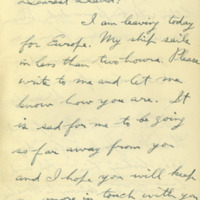 Dearest
I am leaving today
for Europe. My ship sails
in less than two hours. Please
write to me and let me
know how you are. It
is sad for me to be going
so far away from you
and I hope you will keep
more in touch with you